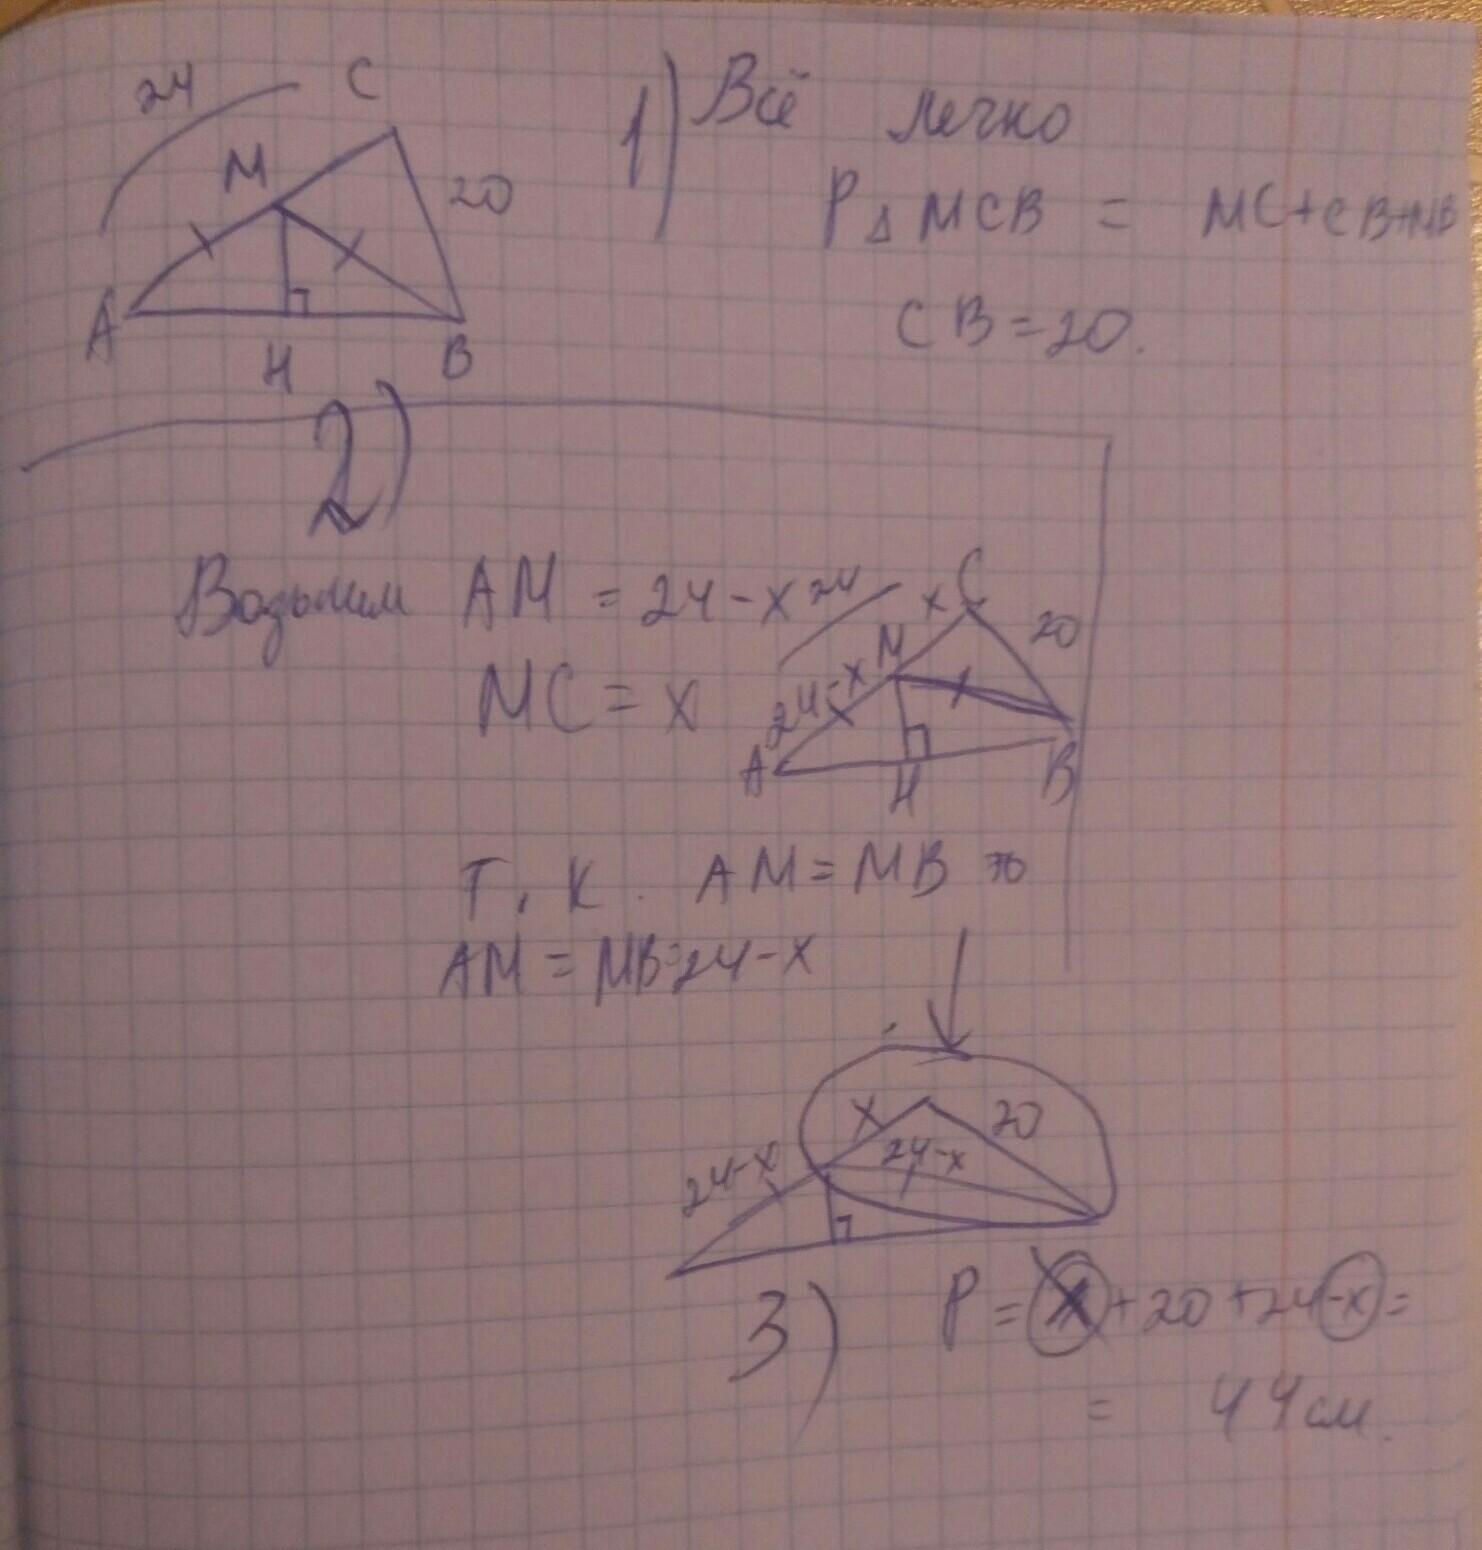 24 C
M
20
A
H
B
1) Всё легко
P△MCB = MC+CB+MB
CB=20.
2)
Возьмем AM = 24-x
MC = x
24
x C
20
M
24-x
A
H
B
Т. к. AM = MB то
AM = MB=24-x
x
20
24-x
24-x
3) P = x+20+24-x=
= 44см.